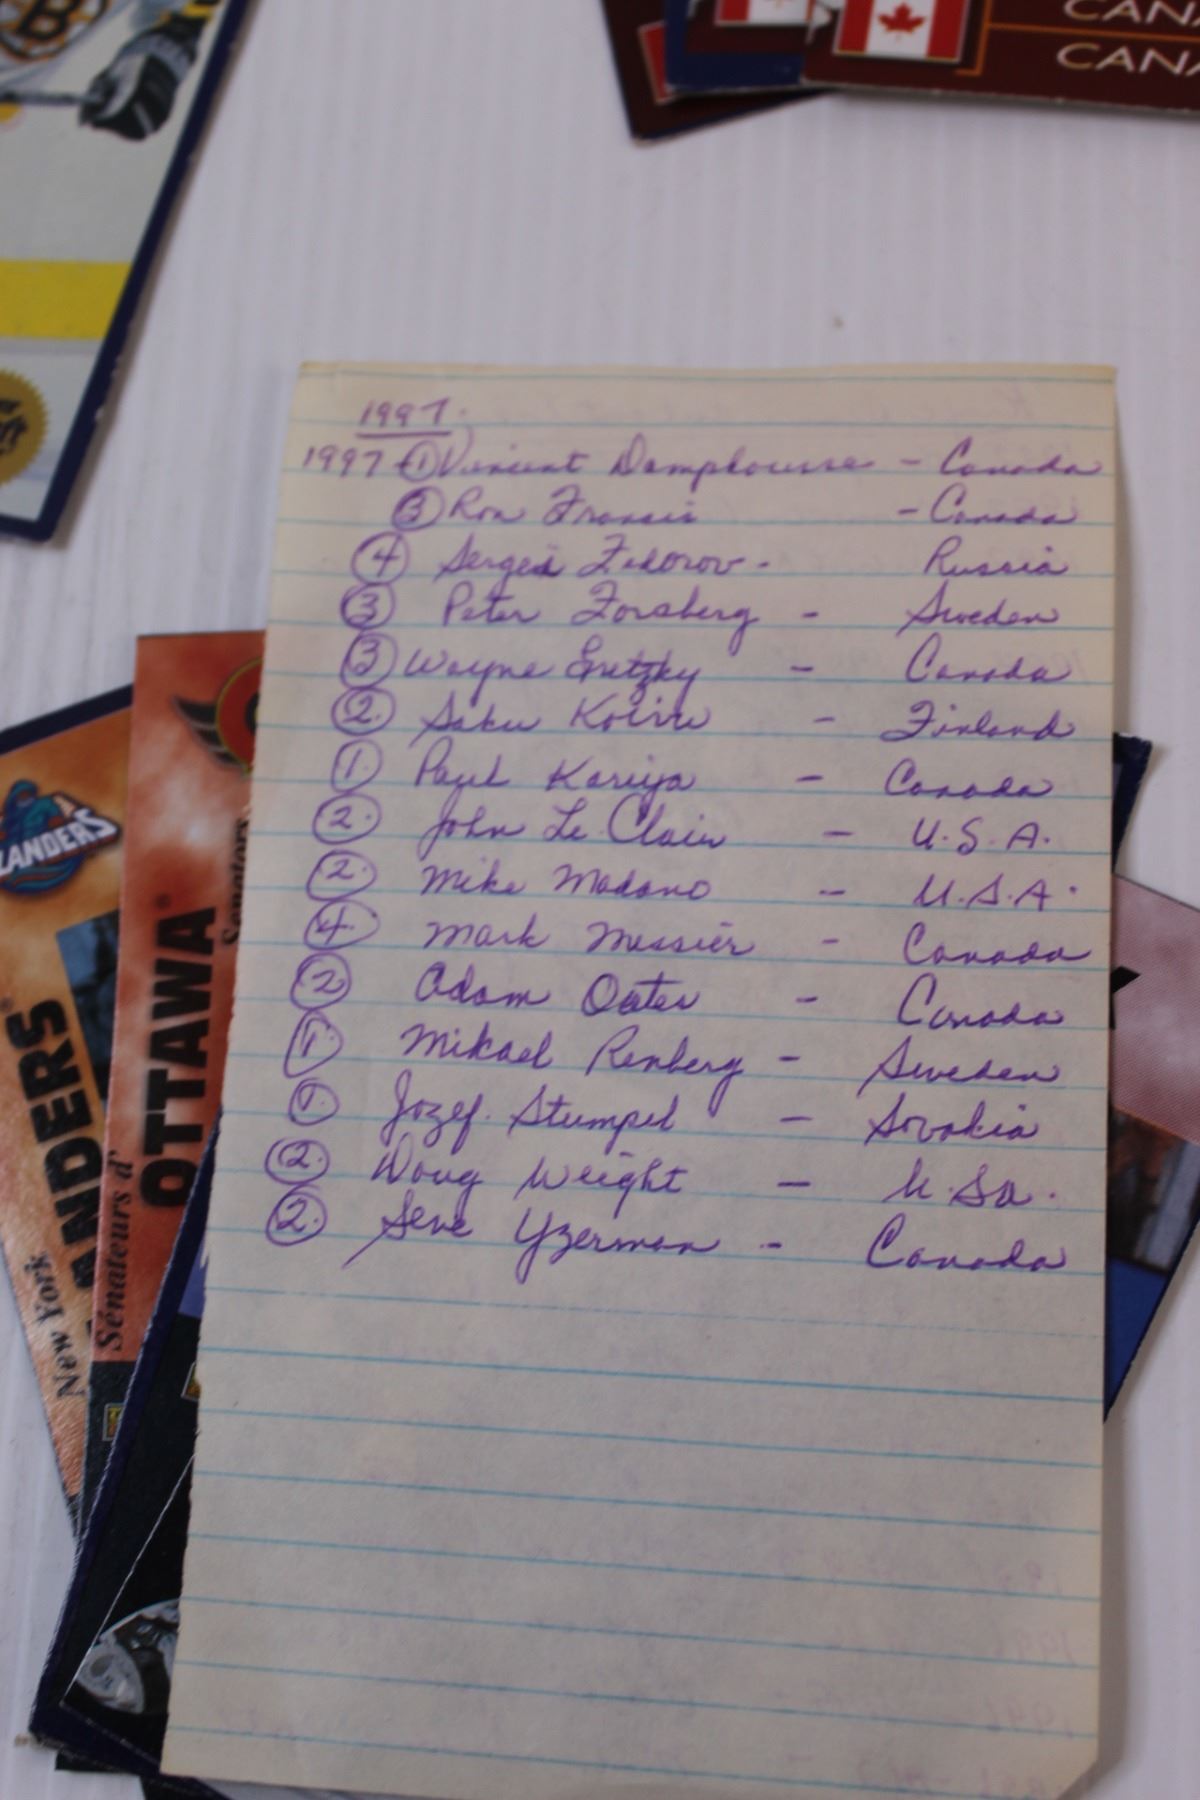 CANA
CANA
1997.
1997 ① Vincent Damphousse - Canada
③ Ron Francis - Canada
④ Sergei Fedorov - Russia
③ Peter Forsberg - Sweden
③ Wayne Gretzky - Canada
②. Saku Koivu - Finland
①. Paul Kariya - Canada
②. John Le Clair - U.S.A.
②. Mike Modano - U.S.A.
④. Mark Messier - Canada
② Adam Oates - Canada
①. Mikael Renberg - Sweden
①. Jozef. Stumpel - Sovakia
②. Doug Weight - U.Sa.
②. Steve Yzerman - Canada
LANDERS
New York
ANDERS
Sénateurs d'
OTTAWA
Senators